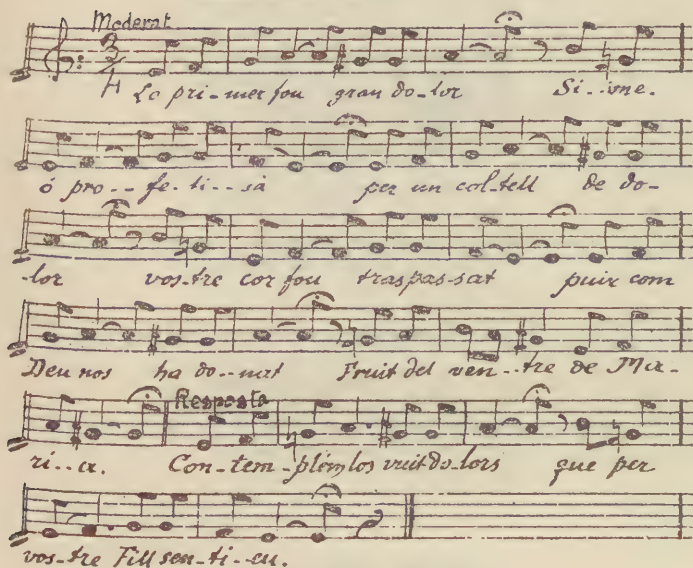 Moderat
3/4
Lo pri-mer fou gran do-lor Si..me.
ó pro--fe-ti--sà per un col-tell de do-
-lor vos-tre cor fou traspas-sat puix com
Deu nos ha do--nat Fruit del ven--tre de Ma-
Resposta
ri--a. Con-tem-plém los vuit do-lors que per
vos-tre Fill sen-ti-eu.